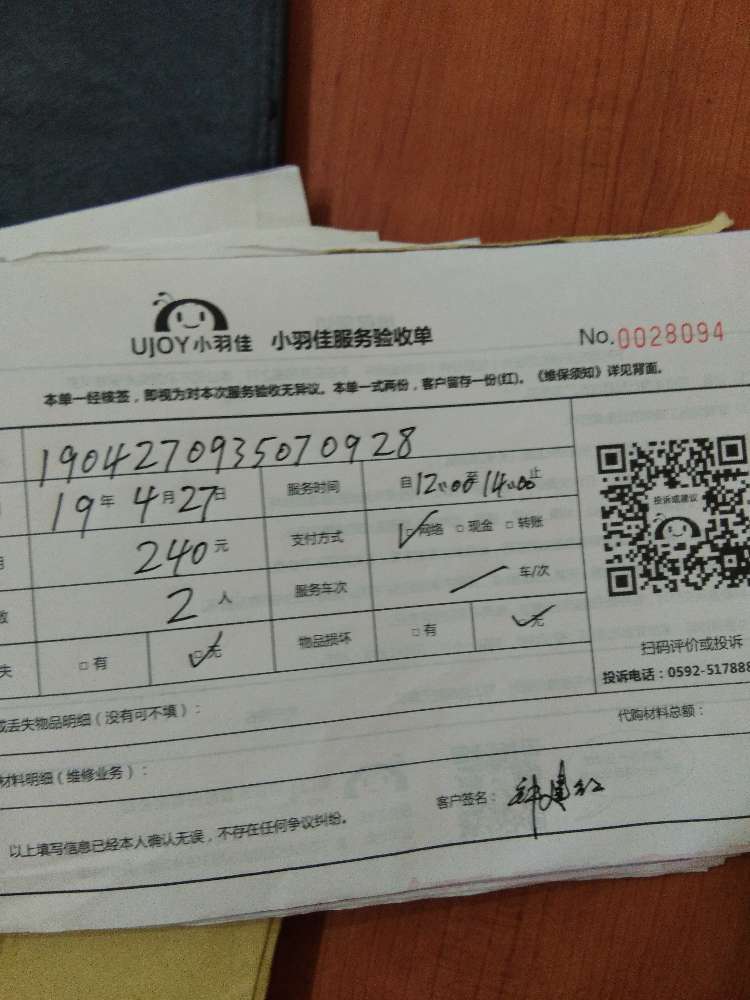 UJOY小羽佳 小羽佳服务验收单 No.0028094
本单一经核签，即视为对本次服务验收无异议。本单一式两份，客户留存一份(红)。《维保须知》详见背面。
1904270935070928
19年4月27日 服务时间 自12:00至14:00止
240元 支付方式 □网络 □现金 □转账
投诉或建议
2人 服务车次 车/次
失 □有 □无 物品损坏 □有 □无
扫码评价或投诉
投诉电话：0592-517888
或丢失物品明细（没有可不填）：
代购材料总额：
材料明细（维修业务）：
客户签名：
以上填写信息已经本人确认无误，不存在任何争议纠纷。